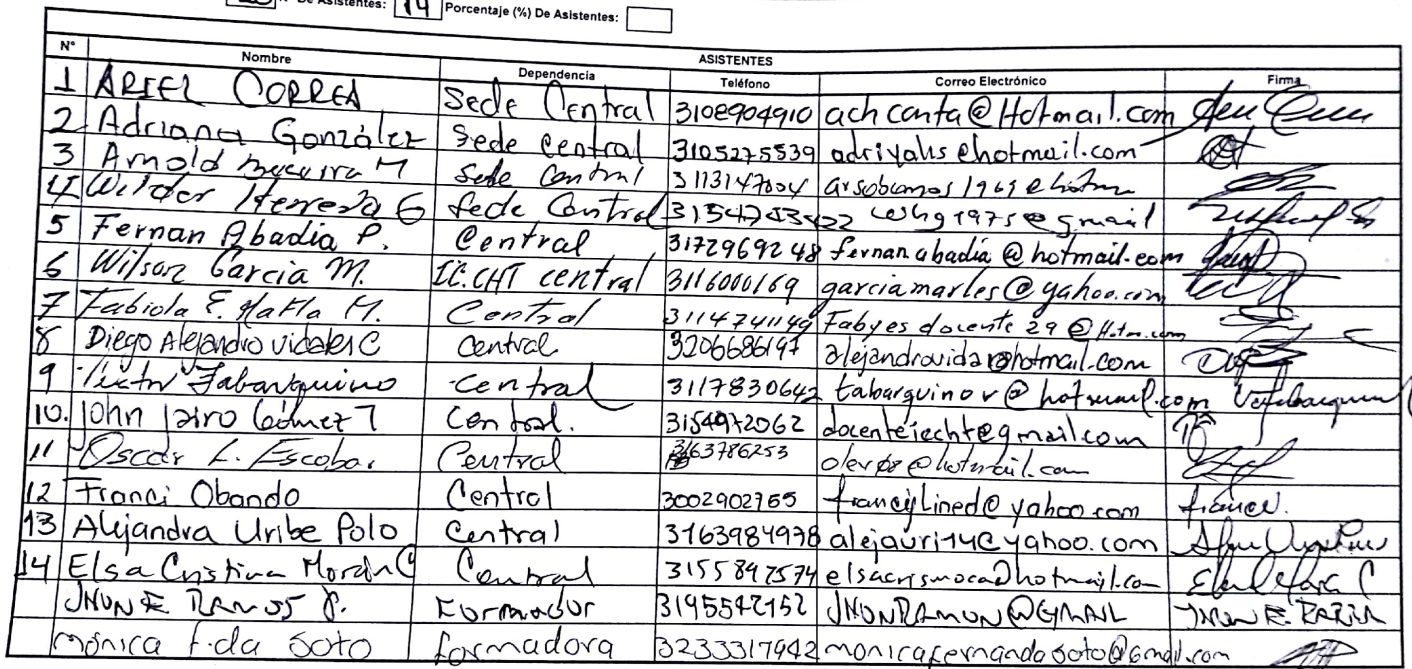 De Asistentes: 14 Porcentaje (%) De Asistentes:
ASISTENTES
N° Nombre Dependencia Teléfono Correo Electrónico Firma
1 ARIEL CORREA Sede Central 3108904910 achcanta@Hotmail.com
2 Adriana González Sede Central 3105275539 adriyalis@hotmail.com
3 Arnold M Sede Central 3113147004
4 Wilder Herrera G Sede Central
5 Fernan Abadia P. Central 3172969248 fernanabadia@hotmail.com
6 Wilson Garcia M. IE.CHT central 3116000169 garciamarles@yahoo.com
7 Fabiola E. Hafla M. Central 3114741149 Fabyesdocente29@Hotm.com
8 Diego Alejandro vidales C Central 3206686197 alejandrovida@hotmail.com
9 Victor Tabarquino Central 3117830642 tabarquinov@hotmail.com
10. John Jairo Gómez T Central. 3154972062 docenteiecht@gmail.com
11 Oscar L. Escobar Central 3163786253
12 Franci Obando Central 3002902765 francylined@yahoo.com francil.
13 Alejandra Uribe Polo Central 3163984978 alejauri14@yahoo.com
14 Elsa Cristina Morán C Central 3155897574 elsacrismoca@hotmail.co
JHON E. RAMOS P. Formador 3195542152 JHONRAMON@GMAIL JHON E.
monica f.da soto formadora 3233317942 monicafernandasoto@Gmail.com